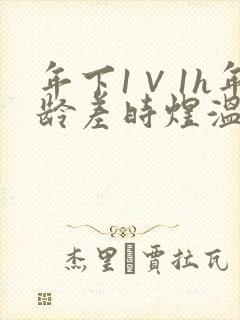 年下1V1h年
龄差时煌温
杰里 贾拉瓦